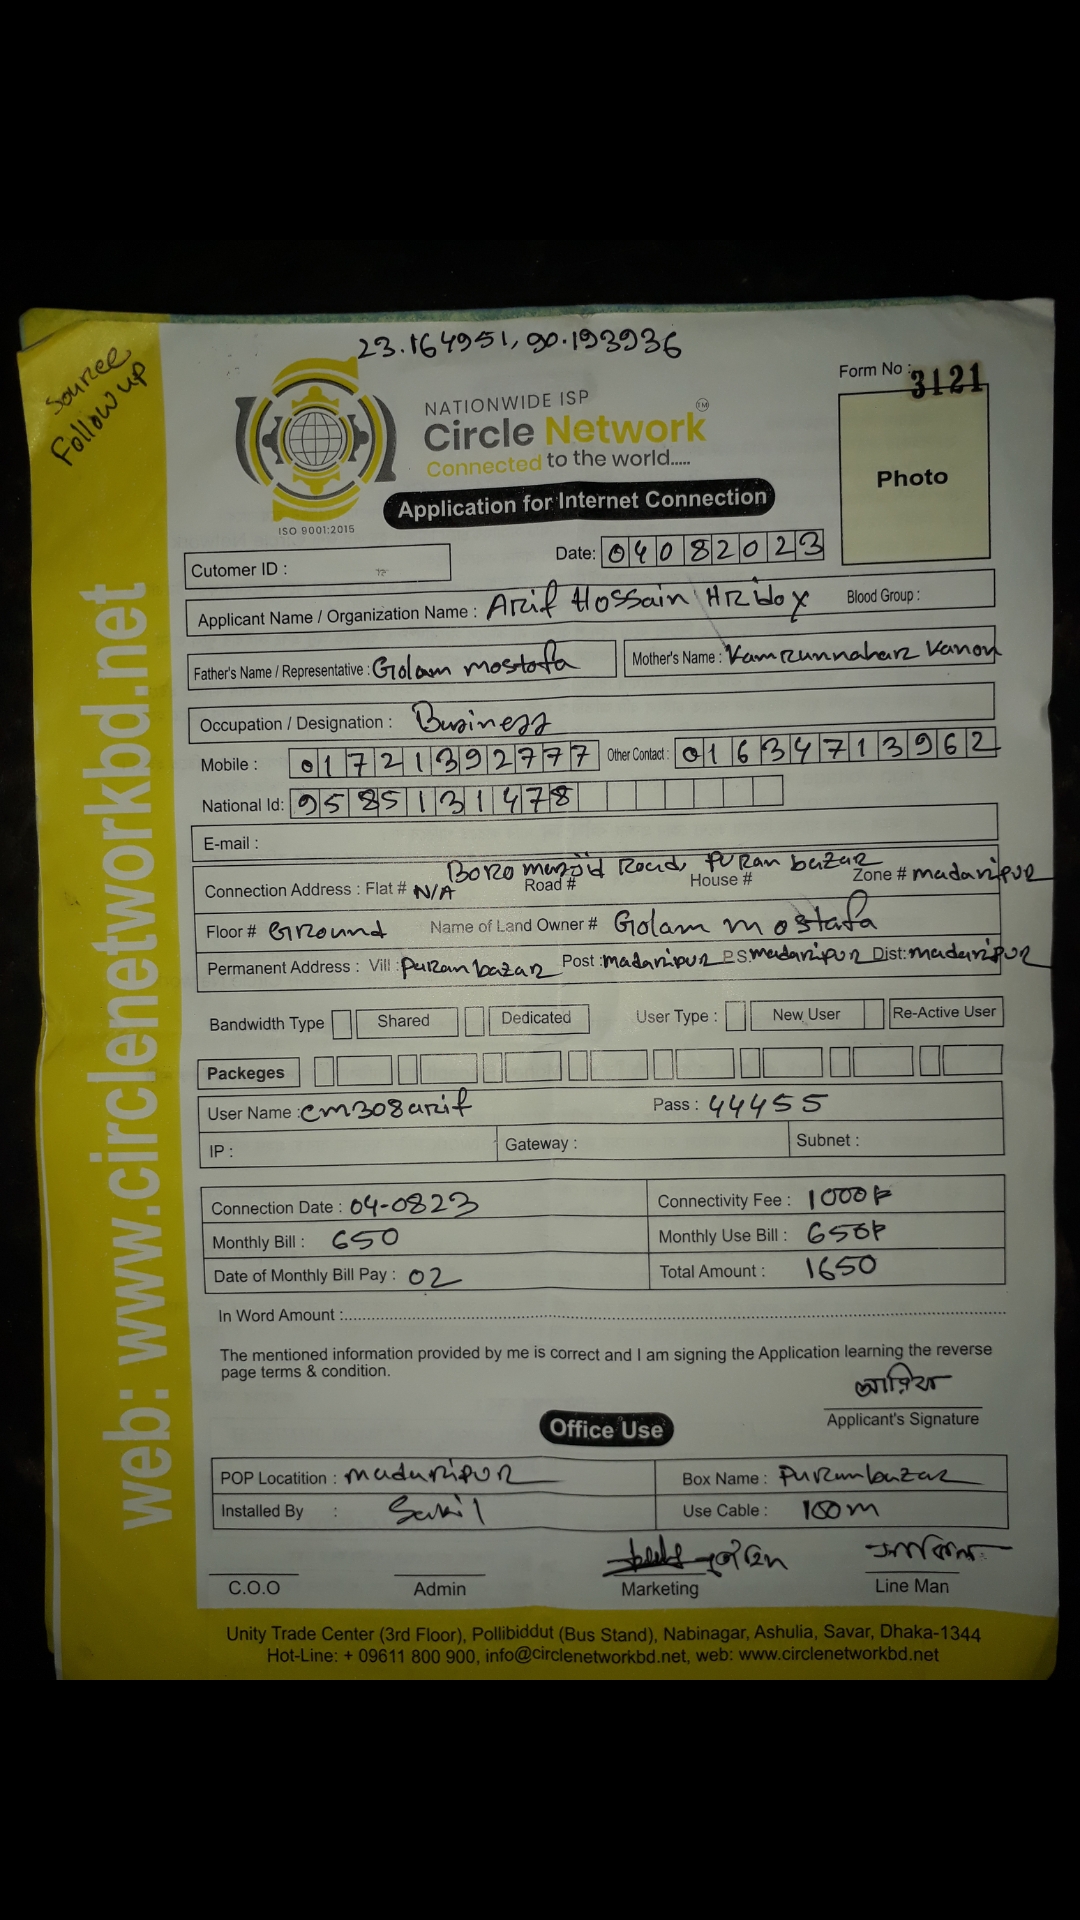 Source
Follow up
23.164951, 90.193936
Form No : 3121
NATIONWIDE ISP
Circle Network TM
Connected to the world.....
Photo
Application for Internet Connection
ISO 9001:2015
Date: 04082023
Cutomer ID :
Applicant Name / Organization Name : Arif Hossain Hridoy Blood Group :
Father's Name / Representative : Golam mostofa Mother's Name : Kamrunnahar Kanon
Occupation / Designation : Business
Mobile : 01721392777 Other Contact : 01634713962
National Id: 9585131478
E-mail :
Boro masjid Road, Puran bazar
Connection Address : Flat # N/A Road # House # Zone # madaripur
Floor # Ground Name of Land Owner # Golam mostafa
Permanent Address : Vill : Puran bazar Post : madaripur P.S: madaripur Dist: madaripur
Bandwidth Type Shared Dedicated User Type : New User Re-Active User
Packeges
User Name : cm308arif Pass : 44455
IP : Gateway : Subnet :
Connection Date : 04-0823 Connectivity Fee : 1000৳
Monthly Bill : 650 Monthly Use Bill : 650৳
Date of Monthly Bill Pay : 02 Total Amount : 1650
In Word Amount :
The mentioned information provided by me is correct and I am signing the Application learning the reverse
page terms & condition.
Applicant's Signature
Office Use
POP Locatition : madaripur Box Name : Puranbazar
Installed By : Sakil Use Cable : 100m
C.O.O Admin Marketing Line Man
Unity Trade Center (3rd Floor), Pollibiddut (Bus Stand), Nabinagar, Ashulia, Savar, Dhaka-1344
Hot-Line: + 09611 800 900, info@circlenetworkbd.net, web: www.circlenetworkbd.net
web: www.circlenetworkbd.net